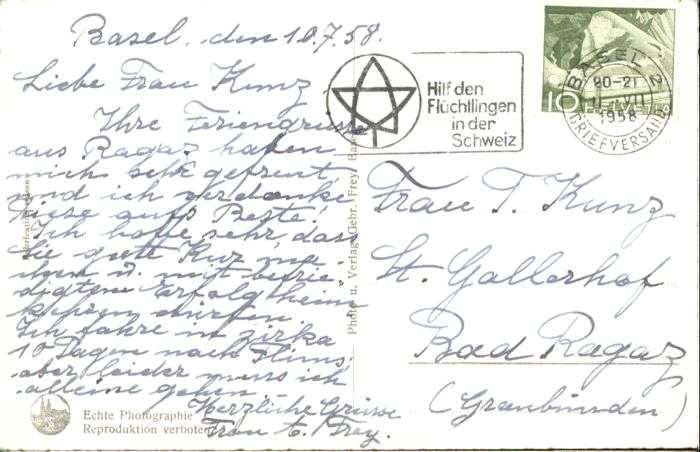 Basel, den 10.7.58.
Liebe Frau Kunz,
Ihre Feriengrüsse
aus Ragaz haben
mich sehr gefreut,
und ich verdanke
diese aufs Beste!
Ich hoffe sehr, dass
Sie gute Kur ma-
chen u. mit befrie-
digtem Erfolg heim
kehren dürfen.
Ich fahre in zirka
10 Tagen nach Flims,
aber leider muss ich
alleine gehen.
Herzliche Grüsse
Frau E. Frey.
Echte Photographie
Reproduktion verboten
Photo u. Verlag Gebr. Frey, Basel
Hilf den
Flüchtlingen
in der
Schweiz
BASEL 2
20-21
1958
BRIEFVERSAND
10 HELVETIA
Frau T. Kunz
St. Gallerhof
Bad Ragaz
(Graubünden)